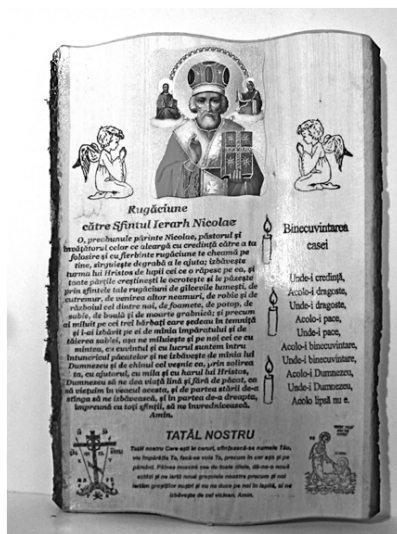 Rugăciune
către Sfîntul Ierarh Nicolae
O, preabunule părinte Nicolae, păstorul și
învățătorul celor ce aleargă cu credință către a ta
folosire și cu fierbinte rugăciune te cheamă pe
tine, sîrguiește degrabă a le ajuta; izbăvește
turma lui Hristos de lupii cei ce o răpesc pe ea, și
toate părțile creștinești le ocrotește și le păzește
prin sfintele tale rugăciuni de gîlcevile lumești, de
cutremur, de venirea altor neamuri, de robie și de
războiul cel dintre noi, de foamete, de potop, de
sabie, de boală și de moarte grabnică; și precum
ai miluit pe cei trei bărbați care ședeau în temniță
și i-ai izbăvit pe ei de mînia împăratului și de
tăierea sabiei, așa ne miluiește și pe noi cei ce cu
mintea, cu cuvîntul și cu lucrul suntem întru
întunericul păcatelor și ne izbăvește de mînia lui
Dumnezeu și de chinul cel veșnic ca, prin solirea
ta, cu ajutorul, cu mila și cu harul lui Hristos,
Dumnezeu să ne dea viață lină și fără de păcat, ca
să viețuim în veacul acesta, și de partea stării de-a
stînga să ne izbăvească, și în partea de-a dreapta,
împreună cu toți sfinții, să ne învrednicească.
Amin.
Binecuvintarea
casei
Unde-i credință,
Acolo-i dragoste,
Unde-i dragoste,
Acolo-i pace,
Unde-i pace,
Acolo-i binecuvintare,
Unde-i binecuvintare,
Acolo-i Dumnezeu,
Unde-i Dumnezeu,
Acolo lipsă nu e.
TATĂL NOSTRU
Tatăl nostru Care ești în ceruri, sfințească-se numele Tău,
vie împărăția Ta, facă-se voia Ta, precum în cer așa și pe
pămînt. Pâinea noastră cea de toate zilele, dă-ne-o nouă
astăzi și ne iartă nouă greșelile noastre precum și noi
iertăm greșiților noștri și nu ne duce pe noi în ispită, ci ne
izbăvește de cel viclean. Amin.